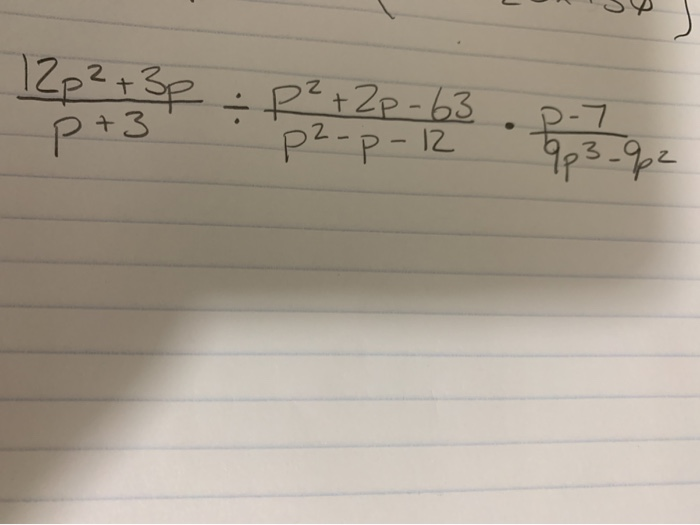 12p² + 3p / p + 3 ÷ p² + 2p - 63 / p² - p - 12 · p - 7 / 9p³ - 9p²